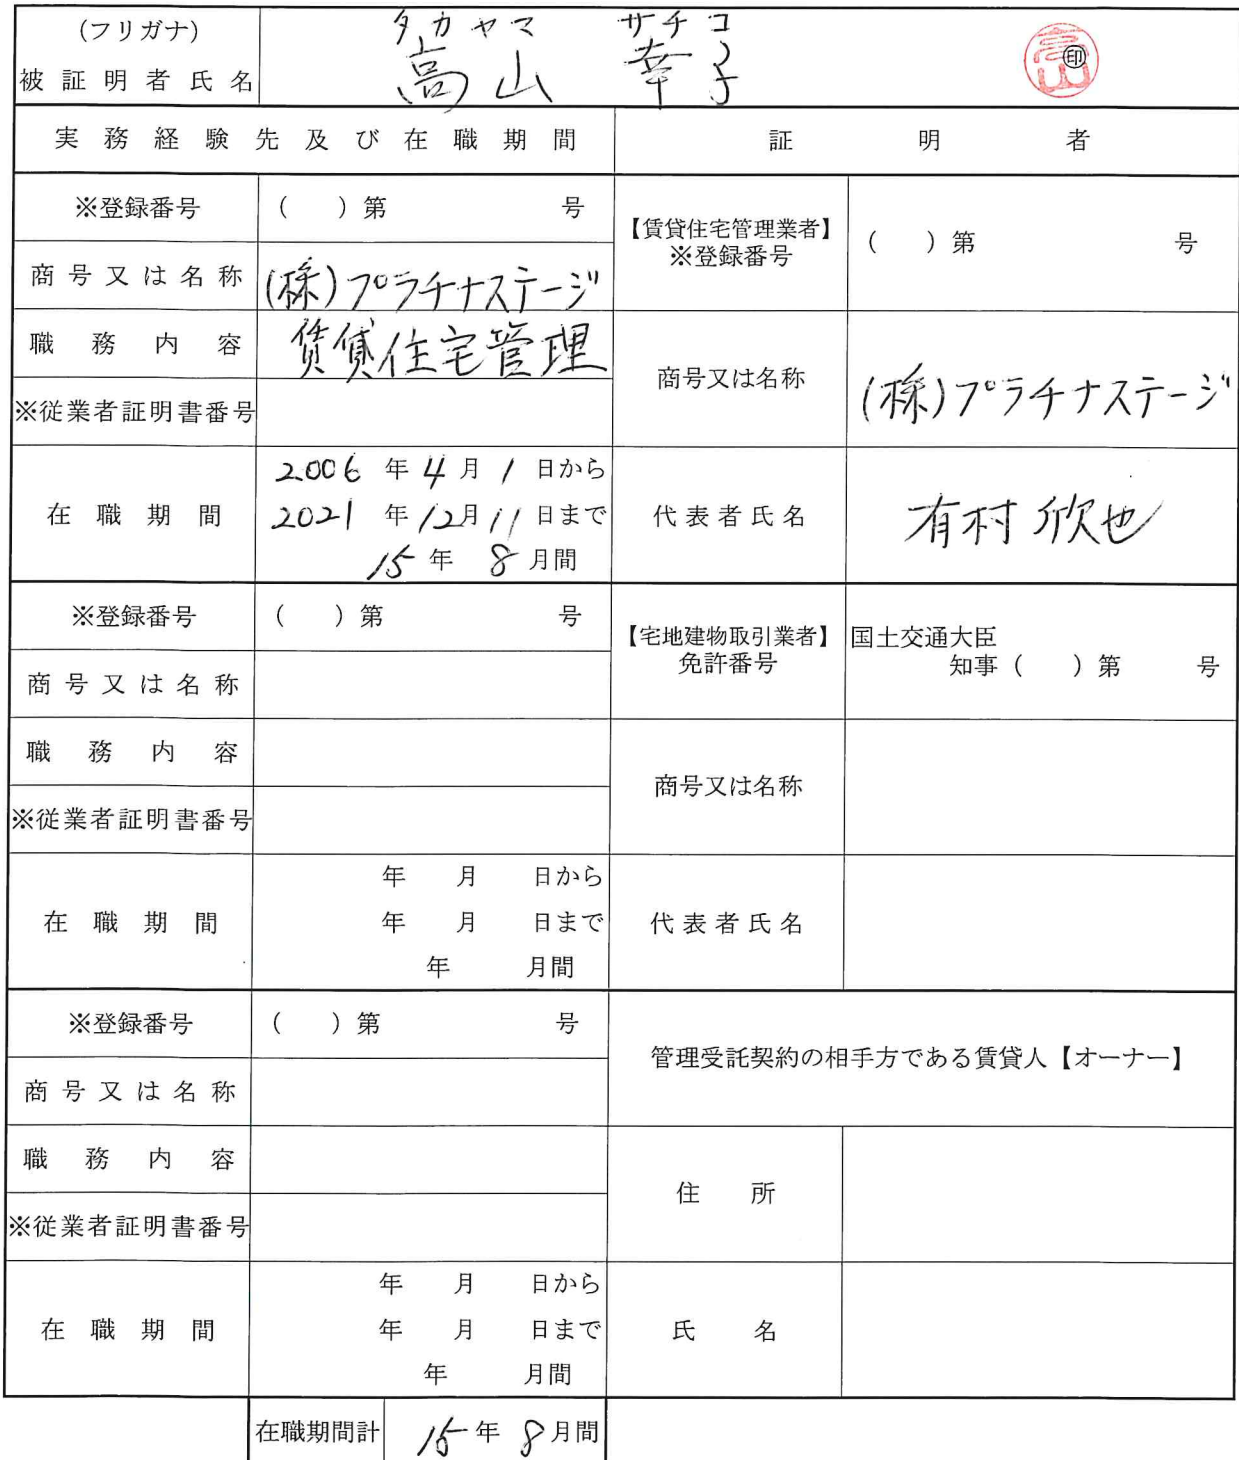 (フリガナ) タカヤマ サチコ
被証明者氏名 高山 幸子 高山 ㊞
実務経験先及び在職期間 証明者
※登録番号 ( )第 号 【賃貸住宅管理業者】 ※登録番号 ( )第 号
商号又は名称 (株)プラチナステージ
職務内容 賃貸住宅管理 商号又は名称 (株)プラチナステージ
※従業者証明書番号
在職期間 2006年4月1日から
2021年12月11日まで 代表者氏名 有村 欣也
15年8月間
※登録番号 ( )第 号 【宅地建物取引業者】 免許番号 国土交通大臣
知事( )第 号
商号又は名称
職務内容 商号又は名称
※従業者証明書番号
在職期間 年 月 日から
年 月 日まで 代表者氏名
年 月間
※登録番号 ( )第 号 管理受託契約の相手方である賃貸人【オーナー】
商号又は名称
職務内容 住所
※従業者証明書番号
在職期間 年 月 日から
年 月 日まで 氏名
年 月間
在職期間計 15年8月間